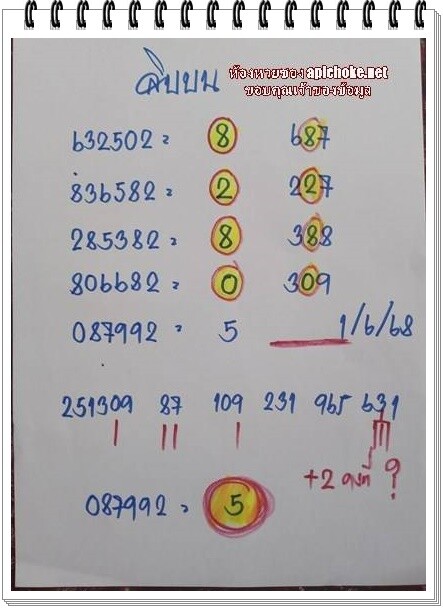 ห้องหวยของ apichoke.net
ขอบคุณเจ้าของข้อมูล
สิบบน
632502 = 8 687
836582 = 2 227
285382 = 8 388
806682 = 0 309
087992 = 5 ___ 1/6/68
251309 87 109 231 965 631
+2 คงที่ ?
087992 = 5